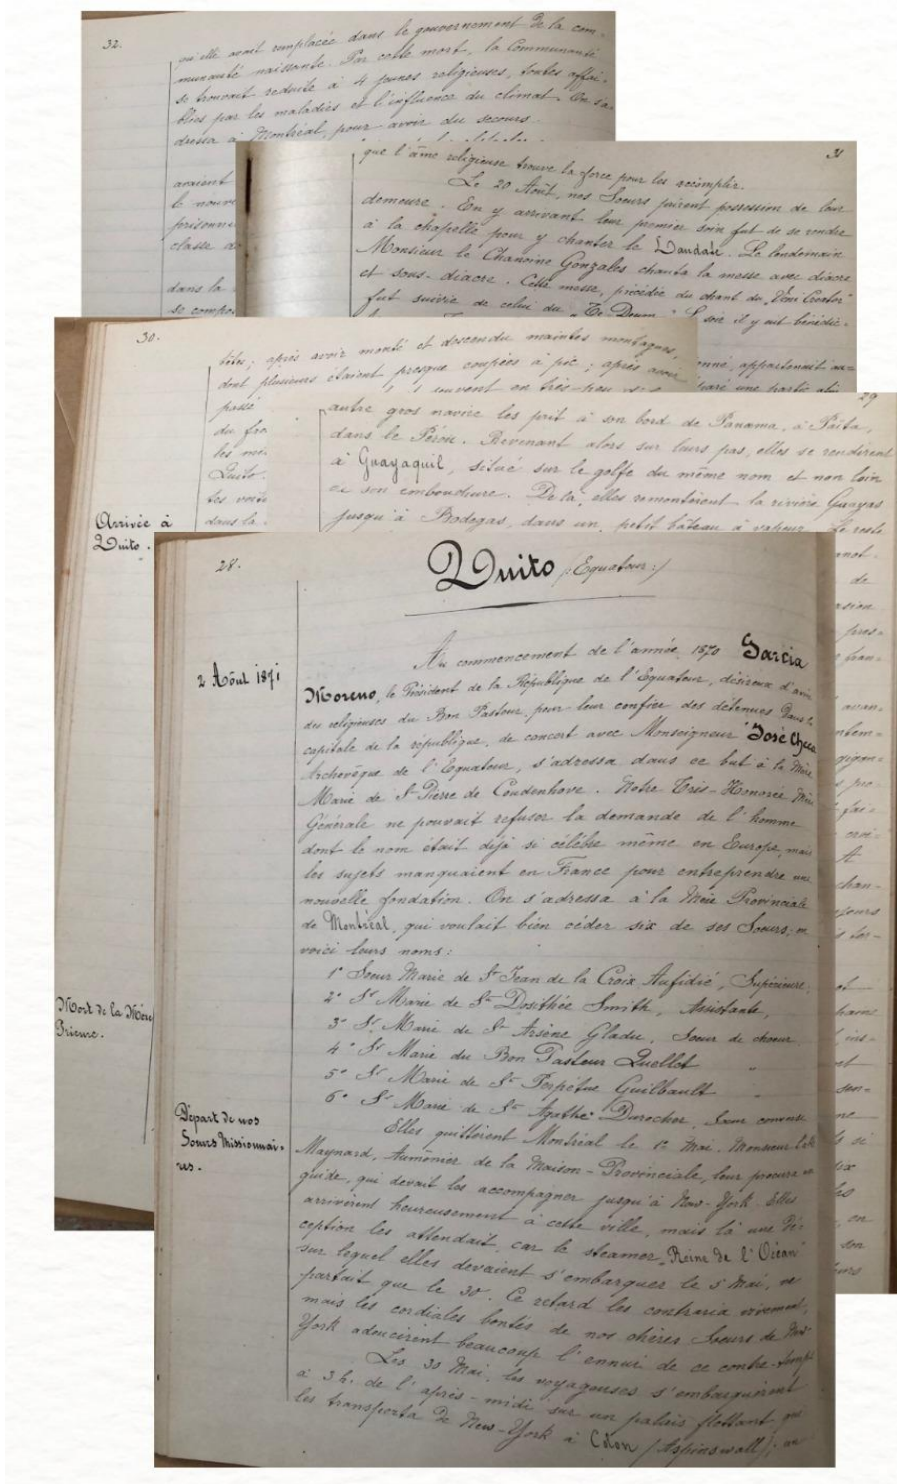 32.
qu'elle avait remplacée dans le gouvernement de la com-
munauté naissante. Par cette mort, la Communauté
se trouvait reduite à 4 jeunes religieuses, toutes affai-
blies par les maladies et l'influence du climat. On s'a-
dressa à Montréal, pour avoir du secours.
avaient
le nouve
prisonni
classe de
dans la
se compo
31
que l'âme religieuse trouve la force pour les accomplir.
Le 20 Août, nos Soeurs prirent possession de leur
demeure. En y arrivant leur premier soin fut de se rendre
à la chapelle pour y chanter le Laudate. Le lendemain
Monsieur le Chanoine Gonzales chanta la messe avec diacre
et sous-diacre. Cette messe, précédée du chant du „Veni Creator"
fut suivie de celui du „Te-Deum". Le soir il y eut bénédic-
onné, appartenait au=
paré une partie
30.
bêtes; après avoir monté et descendu maintes montagnes,
dont plusieurs étaient presque coupées à pic; après avoir
passé souvent en très-peu
du fro
les mé
Quito.
tes voitu
dans la
Arrivée à
Quito.
Mort de la Mère
Prieure.
29
autre gros navire les prit à son bord de Panama, à Païta,
dans le Pérou. Revenant alors sur leurs pas, elles se rendirent
à Guayaquil, situé sur le golfe du même nom et non loin
de son embouchure. De là, elles remontèrent la rivière Guayas
jusqu'à Bodegas, dans un petit bâteau à vapeur. Le reste
28.
Quito /:Equateur:/
2 Aôut 1871
Au commencement de l'année 1870 Garcia
Moreno, le Président de la République de l'Equateur, désireux d'avoir
des religieuses du Bon Pasteur, pour leur confier des détenues dans la
capitale de la république, de concert avec Monseigneur José Checa
Archevêque de l'Equateur, s'adressa dans ce but à la Mère
Marie de St Pierre de Coudenhove. Notre Très-Honorée Mère
Générale ne pouvait refuser la demande de l'homme
dont le nom était déjà si célèbre même en Europe, mais
les sujets manquaient en France pour entreprendre une
nouvelle fondation. On s'adressa à la Mère Provinciale
de Montréal, qui voulait bien céder six de ses Soeurs, en
voici leurs noms:
1° Soeur Marie de St Jean de la Croix Aufidié, Supérieure,
2° Sr Marie de St Dosithée Smith, Assistante,
3° Sr Marie de St Arsène Gladu, Soeur de choeur
4° Sr Marie du Bon Pasteur Quellet "
5° Sr Marie de Ste Perpétue Guilbault "
6° Sr Marie de Ste Agathe Durocher, Soeur converse
Départ de nos
Soeurs Missionnai-
res.
Elles quittèrent Montréal le 1er Mai. Monsieur l'abbé
Maynard, Aumônier de la Maison-Provinciale, leur procura un
guide, qui devait les accompagner jusqu'à New-York. Elles
arrivèrent heureusement à cette ville, mais là une dé-
ception les attendait, car le steamer „Reine de l'Océan"
sur lequel elles devaient s'embarquer le 5 Mai, ne
partait que le 30. Ce retard les contraria vivement,
mais les cordiales bontés de nos chères Soeurs de New-
York adoucirent beaucoup l'ennui de ce contre-temps.
Les 30 Mai, les voyageuses s'embarquèrent
à 3 h. de l'après-midi sur un palais flottant qui
les transporta de New-York à Colon /Aspinwall/; un